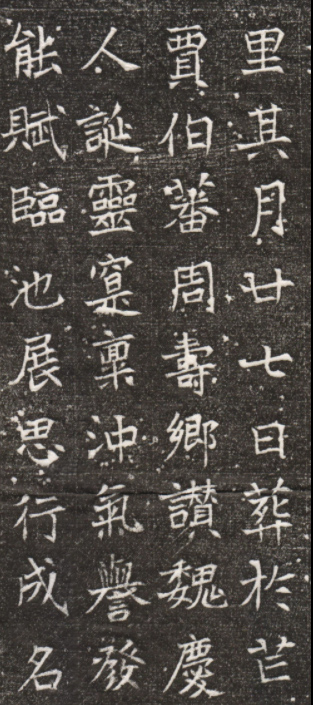 里其月廿七日葬於芒
賈伯蕃周壽鄉讃魏慶
人誕靈寔稟沖氣譽發
能賦臨池展思行成名